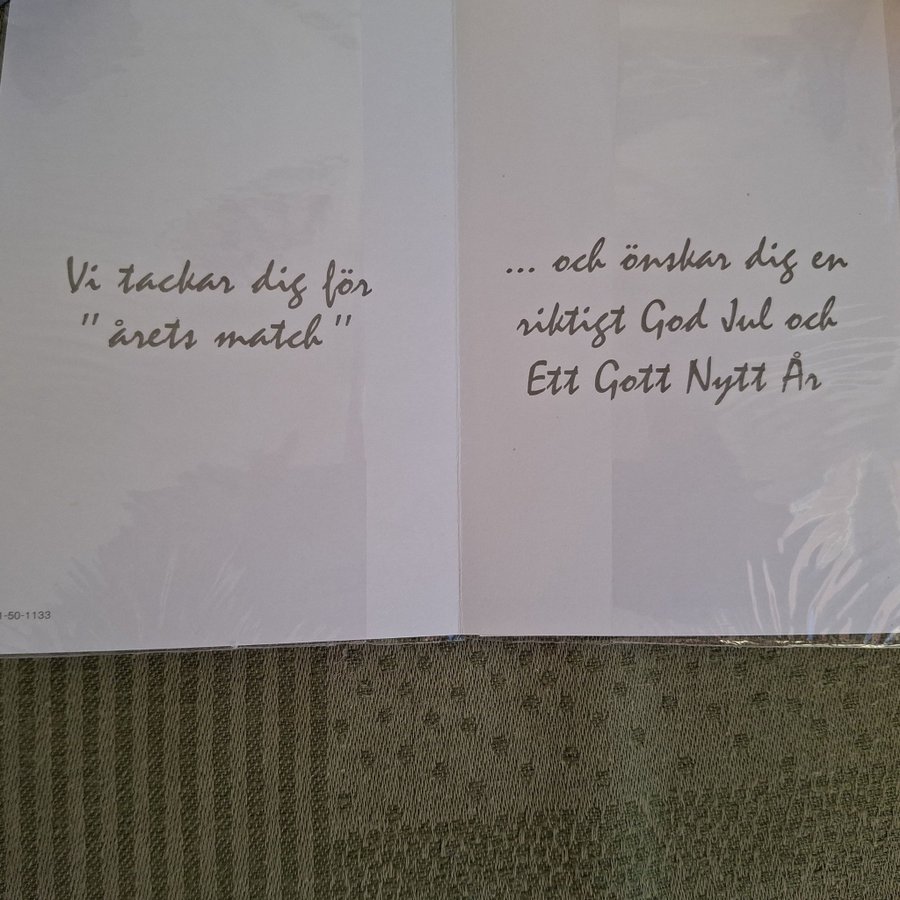 Vi tackar dig för
"årets match"
... och önskar dig en
riktigt God Jul och
Ett Gott Nytt År
1-50-1133